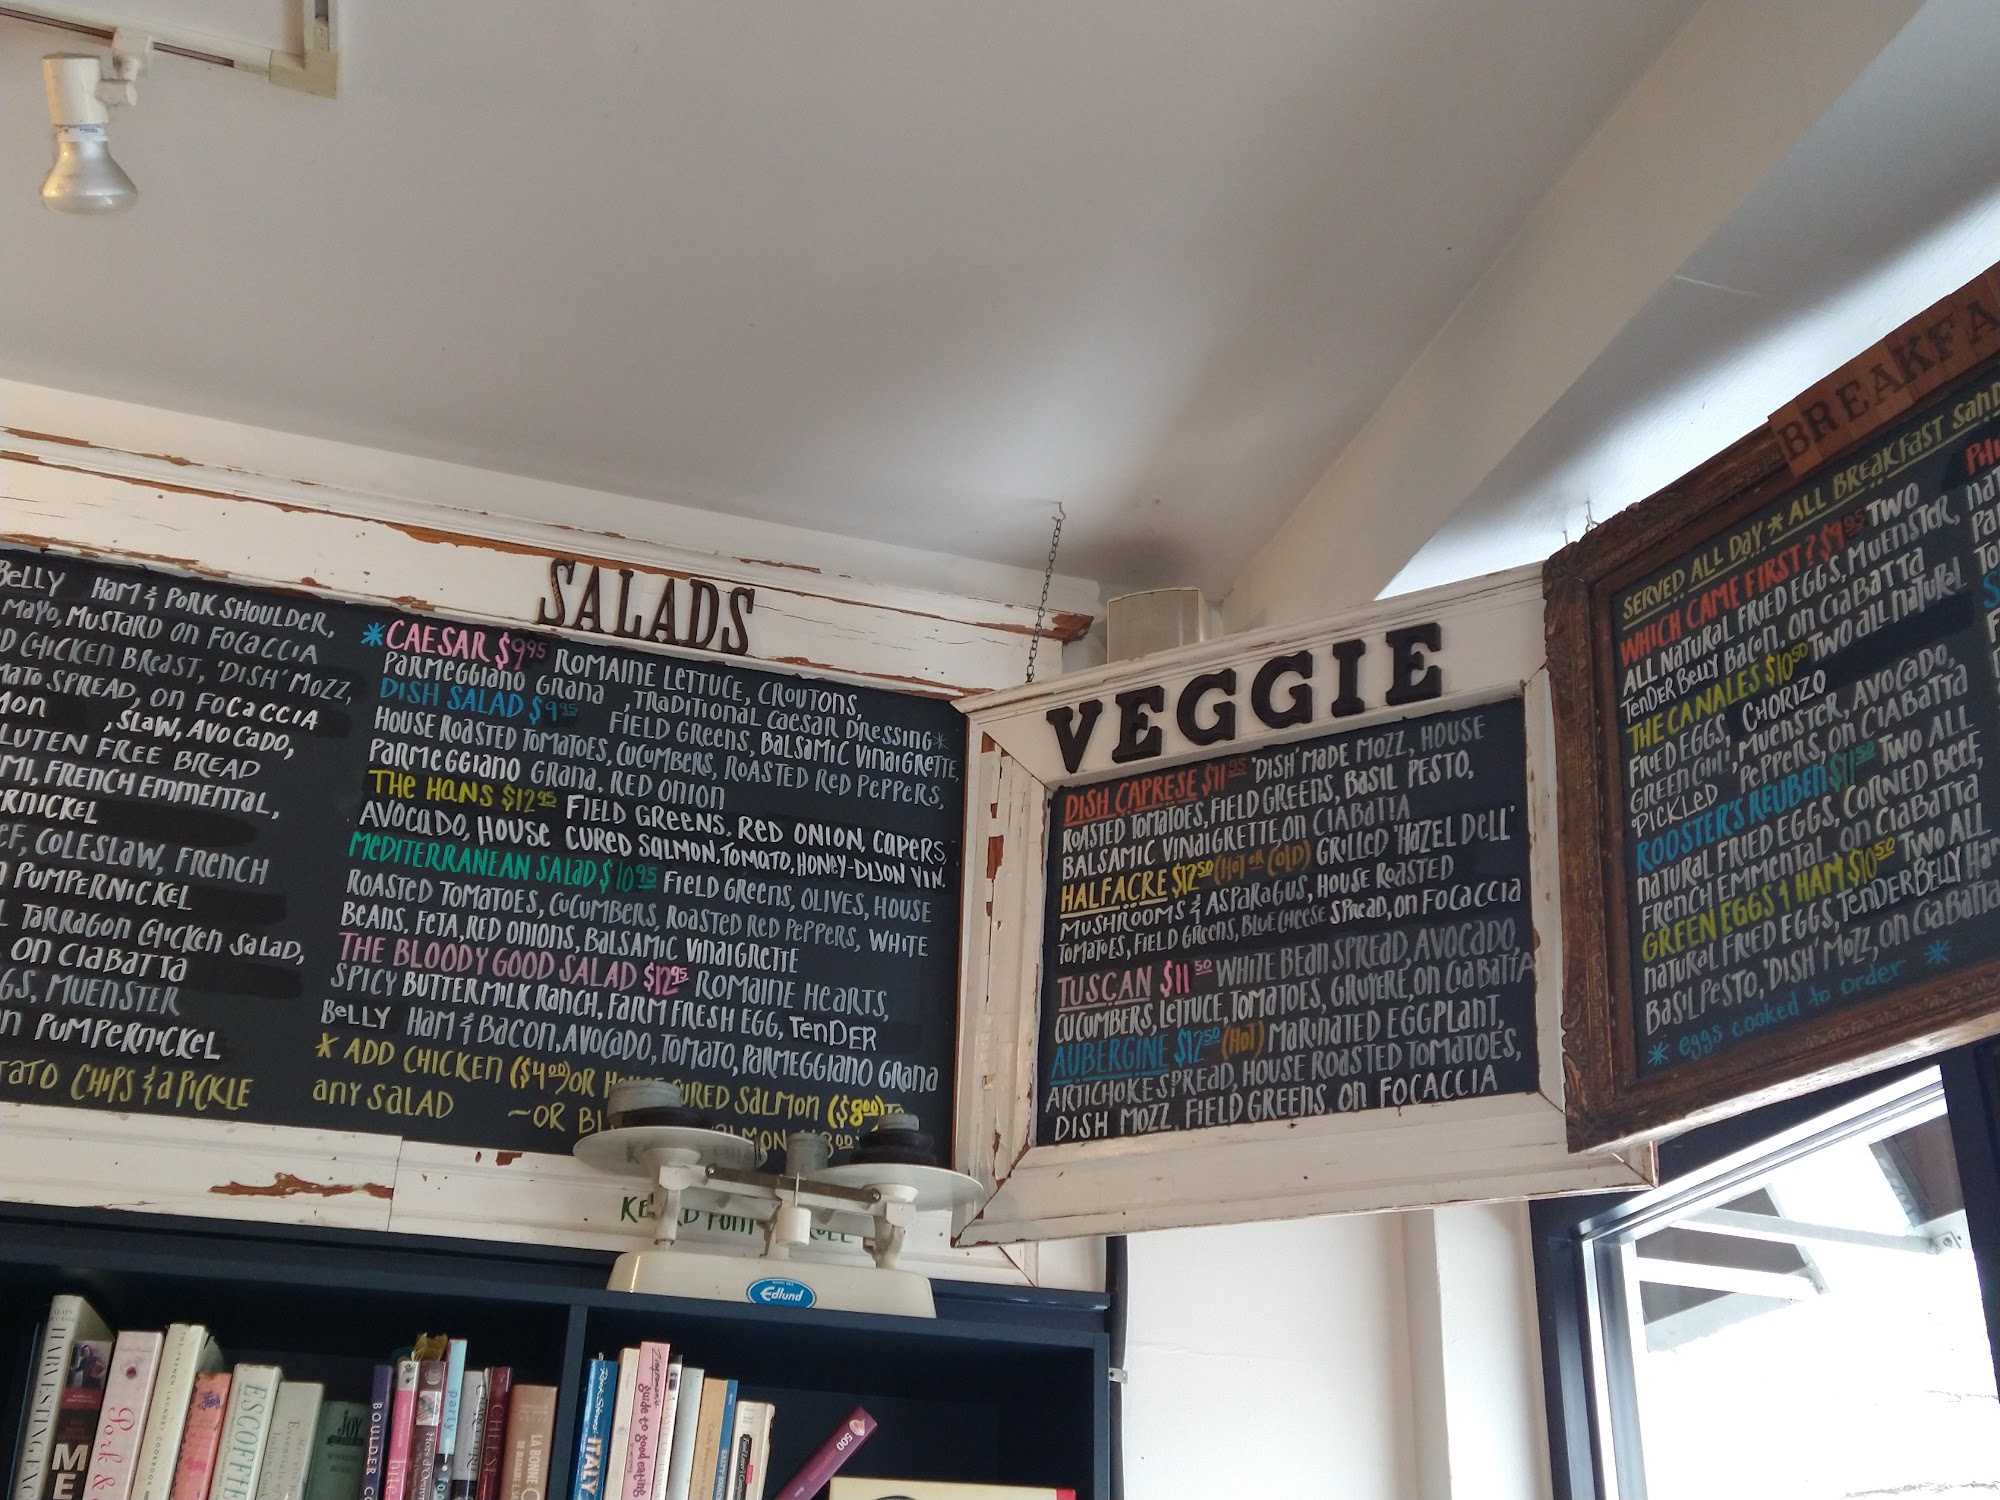 Belly Ham & Pork Shoulder,
Mayo, Mustard on Focaccia
Chicken Breast, 'Dish' Mozz,
Spread, on Focaccia
, Slaw, Avocado,
Gluten Free Bread
, French Emmental,
Coleslaw, French
Pumpernickel
Tarragon Chicken Salad,
on Ciabatta
Muenster
Pumpernickel
Chips & a Pickle
SALADS
*CAESAR $9.95 Romaine Lettuce, Croutons,
Parmeggiano Grana, Traditional Caesar Dressing*
DISH SALAD $9.95 Field Greens, Balsamic Vinaigrette,
House Roasted Tomatoes, Cucumbers, Roasted Red Peppers,
Parmeggiano Grana, Red Onion
THE HANS $12.95 Field Greens, Red Onion, Capers,
Avocado, House Cured Salmon, Tomato, Honey-Dijon Vin.
MEDITERRANEAN SALAD $10.95 Field Greens, Olives, House
Roasted Tomatoes, Cucumbers, Roasted Red Peppers, White
Beans, Feta, Red Onions, Balsamic Vinaigrette
THE BLOODY GOOD SALAD $12.95 Romaine Hearts,
Spicy Buttermilk Ranch, Farm Fresh Egg, Tender
Belly Ham & Bacon, Avocado, Tomato, Parmeggiano Grana
* ADD CHICKEN ($4.00) or Cured Salmon ($8.00) to
any Salad ~OR
VEGGIE
DISH CAPRESE $11.95 'Dish' Made Mozz, House
Roasted Tomatoes, Field Greens, Basil Pesto,
Balsamic Vinaigrette, on Ciabatta
HALFACRE $12.50 (HOT or COLD) Grilled 'Hazel Dell'
Mushrooms & Asparagus, House Roasted
Tomatoes, Field Greens, Blue Cheese Spread, on Focaccia
TUSCAN $11.50 White Bean Spread, Avocado,
Cucumbers, Lettuce, Tomatoes, Gruyere, on Ciabatta
AUBERGINE $12.50 (HOT) Marinated Eggplant,
Artichoke Spread, House Roasted Tomatoes,
Dish Mozz, Field Greens, on Focaccia
Served All Day * All Breakfast
WHICH CAME FIRST? $9.95 Two
All Natural Fried Eggs, Muenster,
Tender Belly Bacon, on Ciabatta
THE CANALES $10.50 Two All Natural
Fried Eggs, Chorizo
Green Chili, Muenster, Avocado,
'Pickled' Peppers, on Ciabatta
ROOSTER'S REUBEN $11.50 Two All
Natural Fried Eggs, Corned Beef,
French Emmental, on Ciabatta
GREEN EGGS & HAM $10.50 Two All
Natural Fried Eggs, Tender Belly Ham
Basil Pesto, 'Dish' Mozz, on Ciabatta
* eggs cooked to order *
Edlund
HARVESTING
Pork &
ESCOFFIER
joy
BOULDER
party
ITALY
guide to good eating
LA BONNE
500